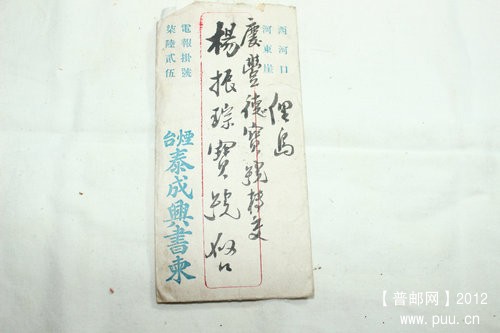 西河口
河東崖
俚島
慶豐德寶號轉交
楊振琮寶號啓
電報掛號
柒陸貳伍
煙台
泰成興書柬
【普邮网】2012
www.puu.cn